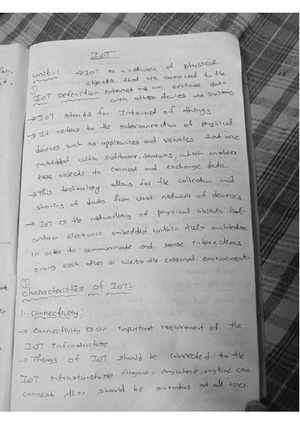 IoT
Unit-1 → IoT is a network of physical
objects that are connected to the
① IoT Definition internet and can exchange data
with other devices and systems
→ IoT stands for Internet of Things
→ It refers to the interconnection of physical
devices, such as appliances and vehicles that are
embedded with software, sensors, which enables
these objects to connect and exchange data.
→ This technology allows for the collection and
sharing of data from vast network of devices
→ IoT is the networking of physical objects that
contain electronic embedded within their architecture
in order to communicate and sense interactions
among each other or to the external environment.
Characteristics of IoT:-
1. Connectivity:
→ Connectivity is an important requirement of the
IoT infrastructure
→ Things of IoT should be connected to the
IoT infrastructure. Anyone, Anywhere, anytime can
connect, this should be at all times.